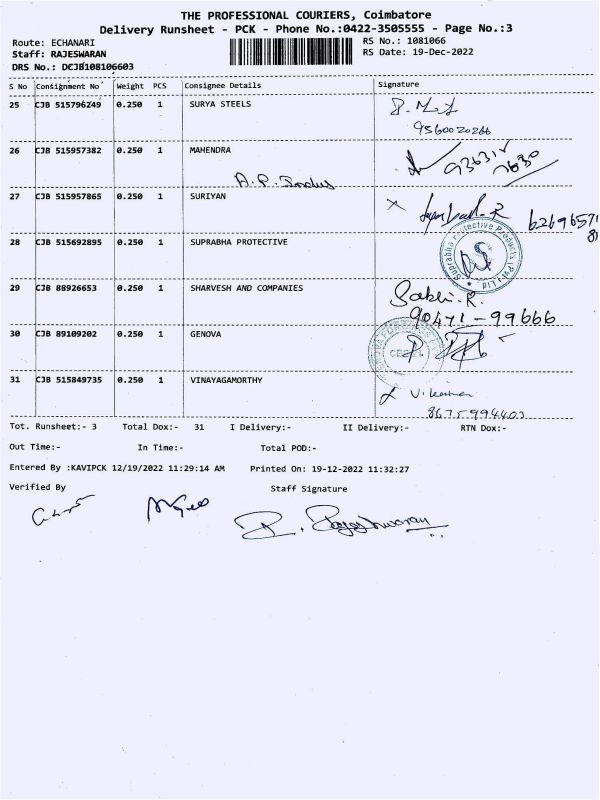 THE PROFESSIONAL COURIERS, Coimbatore
Delivery Runsheet - PCK - Phone No.:0422-3505555 - Page No.:3
Route: ECHANARI RS No.: 1081066
Staff: RAJESWARAN RS Date: 19-Dec-2022
DRS No.: DCJB108106603
S No Consignment No Weight PCS Consignee Details Signature
25 CJB 515796249 0.250 1 SURYA STEELS
9560020266
26 CJB 515957382 0.250 1 MAHENDRA
27 CJB 515957865 0.250 1 SURIYAN
28 CJB 515692895 0.250 1 SUPRABHA PROTECTIVE
Suprabha Protective Products (Pvt)
29 CJB 88926653 0.250 1 SHARVESH AND COMPANIES
90471-99666
30 CJB 89109202 0.250 1 GENOVA
31 CJB 515849735 0.250 1 VINAYAGAMORTHY
8675994403
Tot. Runsheet:- 3 Total Dox:- 31 I Delivery:- II Delivery:- RTN Dox:-
Out Time:- In Time:- Total POD:-
Entered By :KAVIPCK 12/19/2022 11:29:14 AM Printed On: 19-12-2022 11:32:27
Verified By Staff Signature